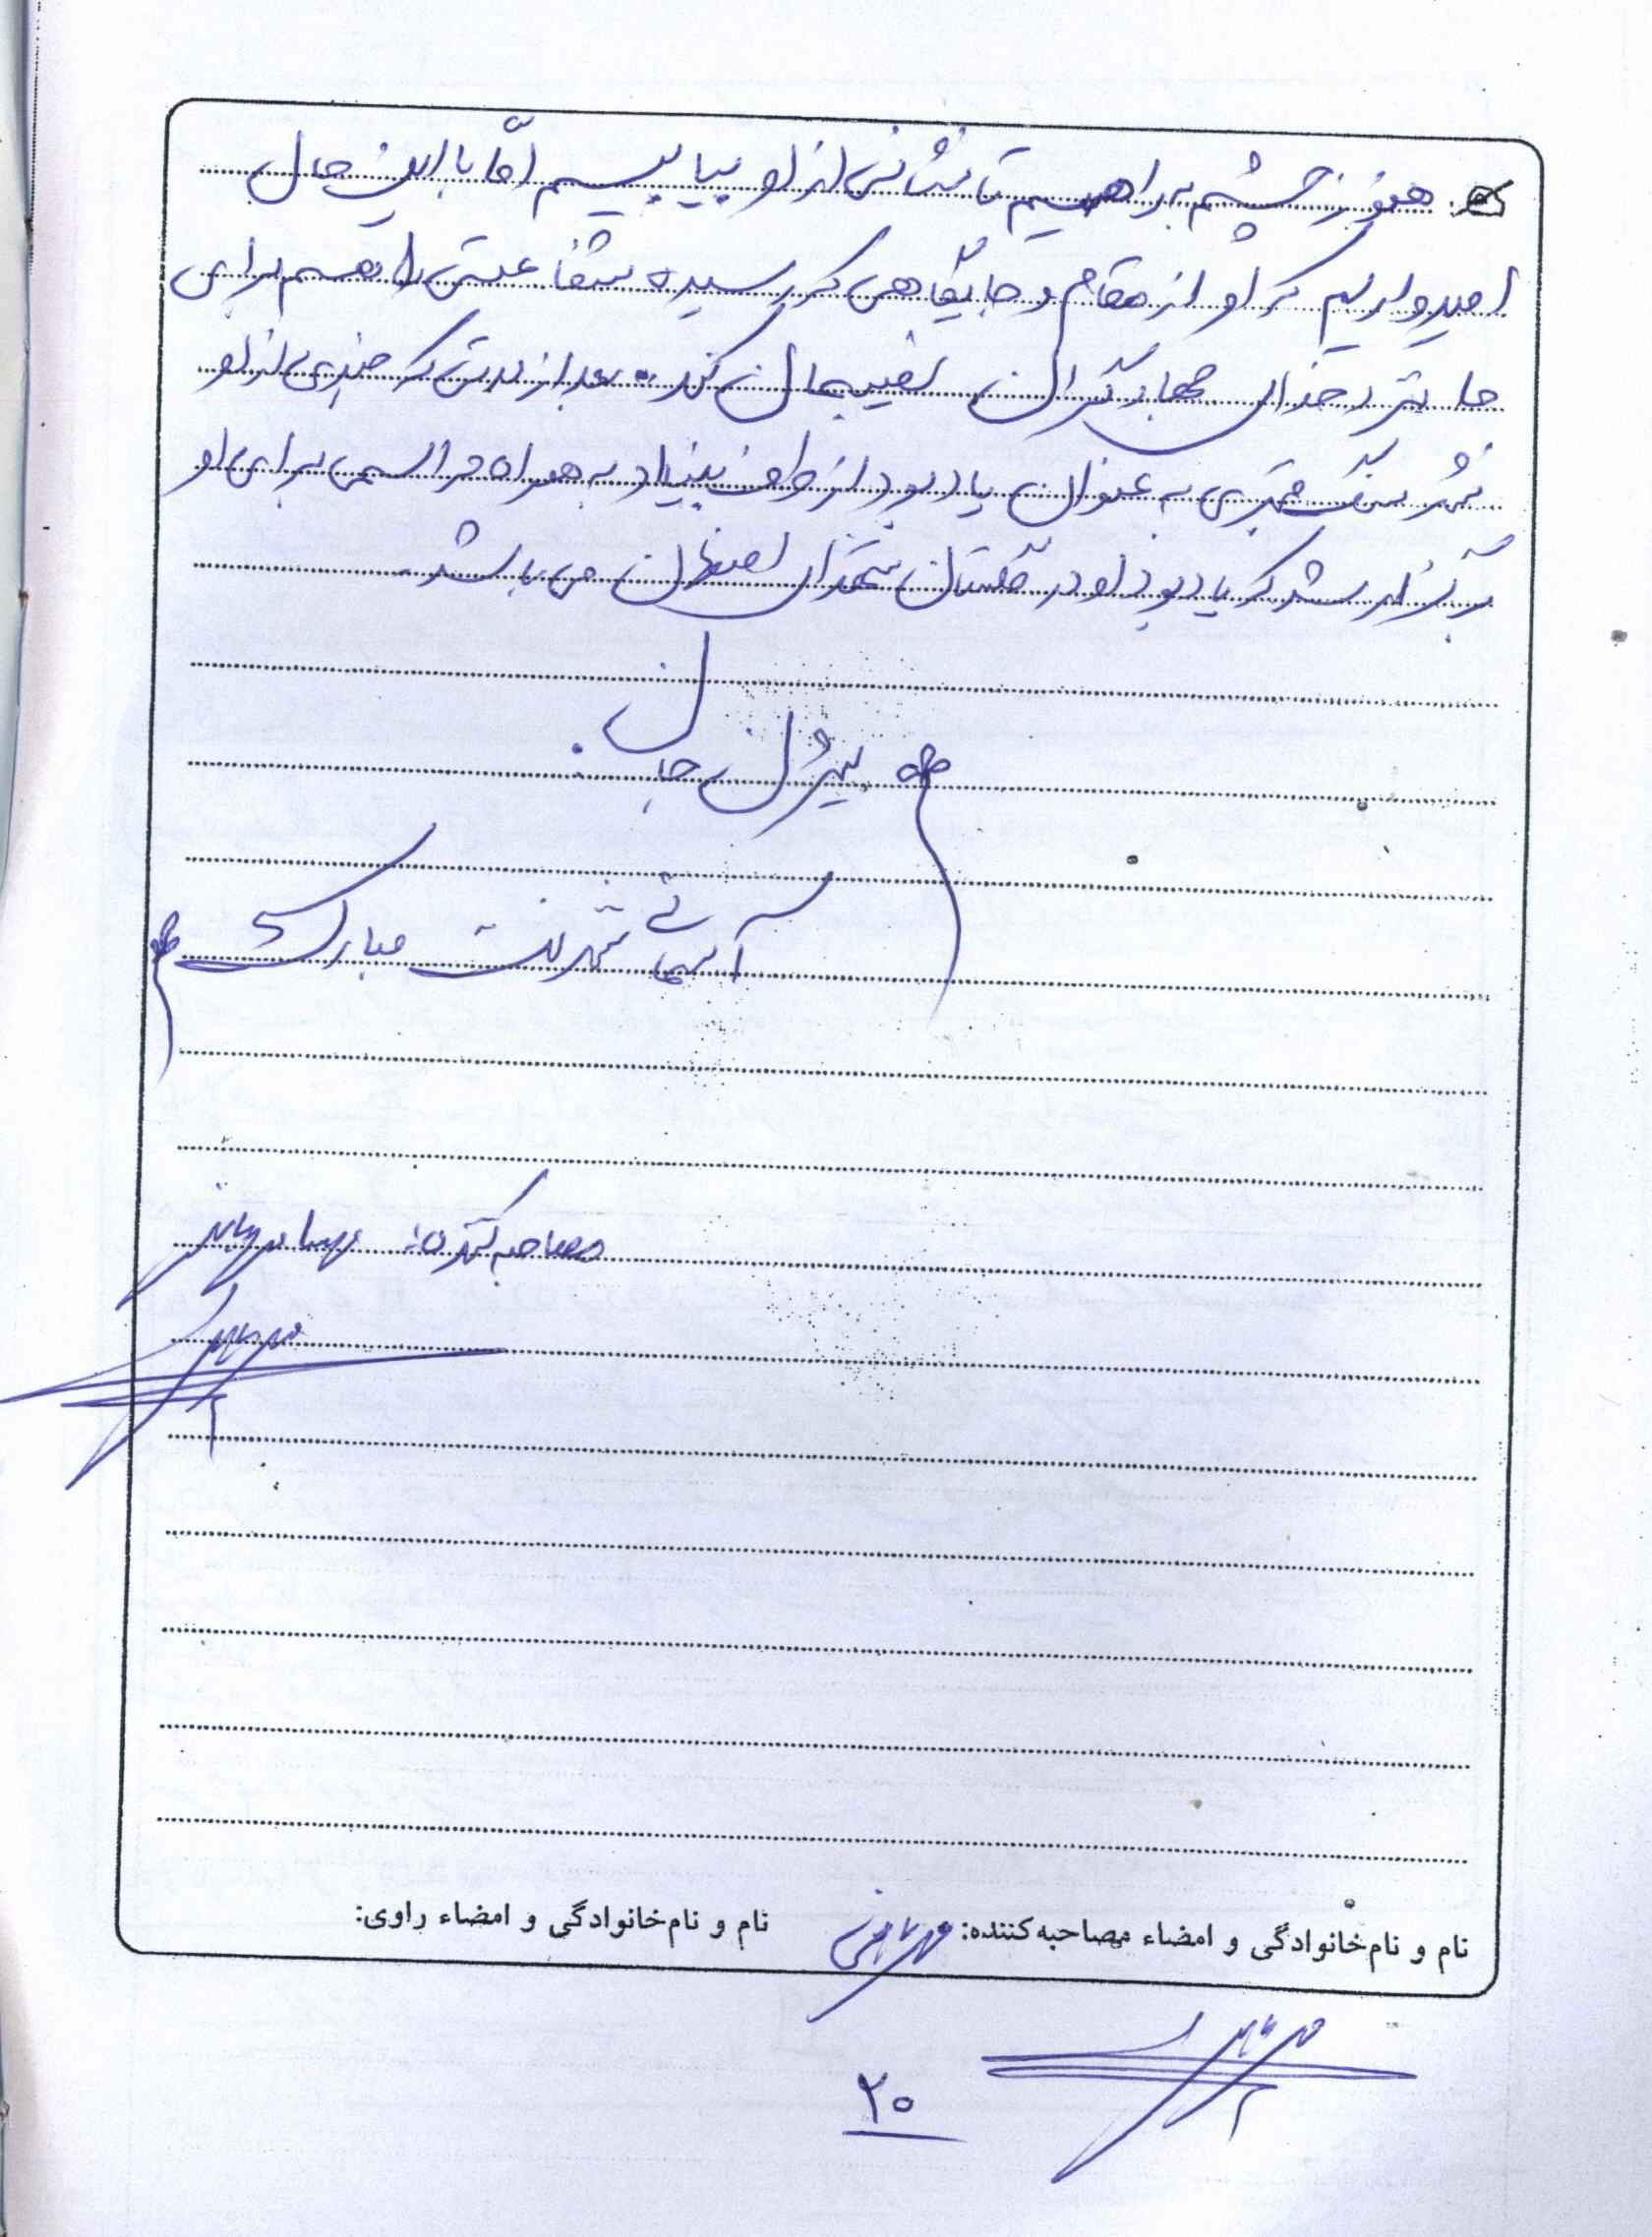 هنوز چشم به راهیم تا نشانی از او بیابیم امّا با این حال
امیدواریم که او از مقام و جایگاهی که رسیده شفاعتش را هم برای
ما نزد خدای نصیبمان کند. بعد از مدتی که خبری از او
نشد سنگ قبری به عنوان یادبود از طرف بنیاد به همراه مراسمی برای او
برگزار شد که یادبود او در گلستان شهدای اصفهان می باشد.
بیژن جان
آسمانی شدنت مبارک
مصاحبه کننده:
نام و نام‌خانوادگی و امضاء مصاحبه‌کننده: نام و نام‌خانوادگی و امضاء راوی:
۲۰